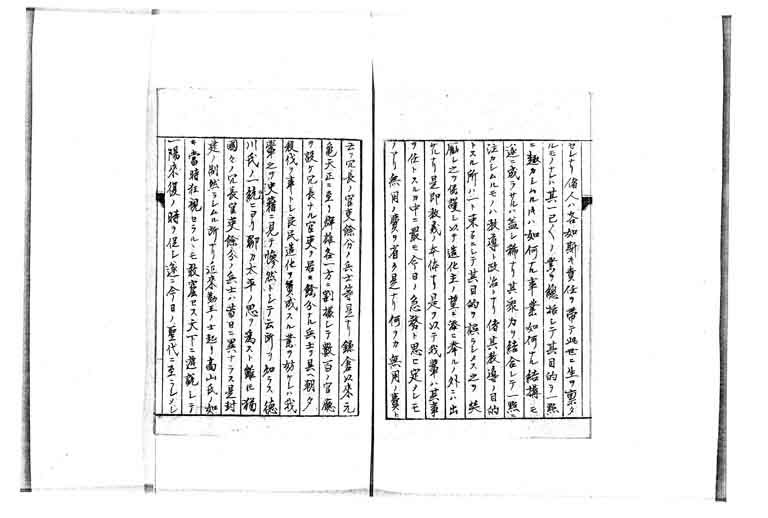 セレリ偖人ハ各如斯キ責任ヲ帯テ此世ニ生ヲ稟タ
ルモノナレハ其一已〱ノ業ヲ總括シテ其目的ヲ一點
ニ趣カシムル片ハ如何ナル事業如何ナル結搆モ
遂ニ成ラサルハ盖シ稀ナリ其衆力ヲ結合シテ一點ニ
注カシムルモノハ教導ト政治トナリ偖其教導ノ目的
トスル所ハ一ト束子ニシテ其目的ヲ誤ラシメス之ヲ奬
勵シ之ヲ保護シ以テ造化主ノ望ニ答ヘ奉ルノ外ニ出
ルナリ是即教義ノ本体ナリ是ヲ以テ我輩ハ其事
ヲ任トスルカ中ニ最モ今日ノ急務ト思ヒ定メシモ
ノアリ無用ノ費ヲ省ク是ナリ何ヲカ無用ノ費ト
云フ冗長ノ官吏餘分ノ兵士等是ナリ鎌倉以来元
亀天正ニ至リ群雄各一方ニ割據シテ數百ノ官廳
ヲ設ケ冗長ナル官吏ヲ置キ餘分ナル兵士ヲ具ヘ朝夕
殺伐ヲ事トシ良民造化ヲ賛成スル業ヲ妨ケシハ我
輩之ヲ史籍ニ見テ慘然トシテ云所ヲ知ラス徳
川氏ノ一統ニヨリ聊カ太平ノ思ヲ為スト雖𪜈猶
國々ノ冗長官吏餘分ノ兵士ハ昔日ニ異ナラス是封
建ノ制然ラシムル所ナリ近来勤王ノ士起リ高山氏ノ如
キ當時狂視セラルヽモ敢窟セス天下ニ遊説シテ
一陽来復ノ時ヲ促シ遂ニ今日ノ聖代ニ至ラシメシ